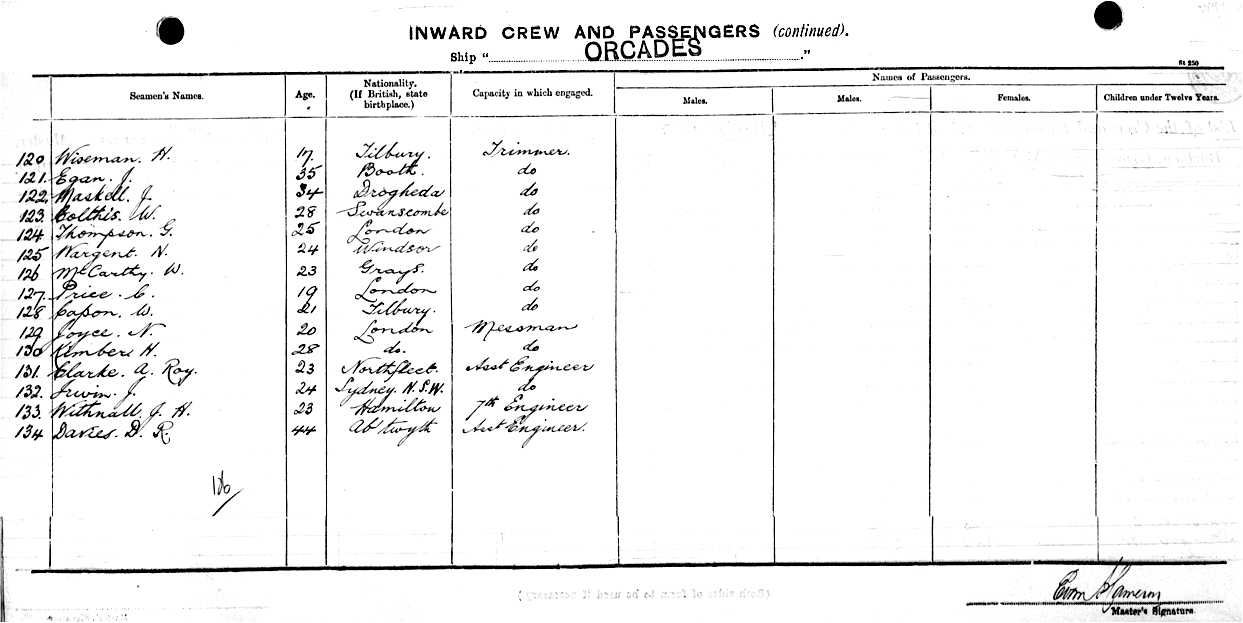 INWARD CREW AND PASSENGERS (continued).
Ship "ORCADES"
S1 250
Seamen's Names. Age. Nationality. (If British, state birthplace.) Capacity in which engaged. Names of Passengers.
Males. Males. Females. Children under Twelve Years.
120. Wiseman. H. 17. Tilbury. Trimmer.
121. Egan. J. 35 Bootle. do
122. Maskell. J. 34 Drogheda do
123. W. 28 Swanscombe do
124. Thompson. G. 25 London do
125 Wargent. N. 24 Windsor do
126 McCarthy. W. 23 Grays. do
127. Price. C. 19 London do
128 Capon. W. 21 Tilbury. do
129 Joyce. N. 20 London Messman
130 Kimber H. 28 do. do
131. Clarke. A. Roy. 23 Northfleet. Asst Engineer
132. Irwin. J. 24 Sydney. N.S.W. do
133. Withnall. J. H. 23 Hamilton 7th Engineer
134 Davies. D. R. 44 Ab'twyth Asst Engineer.
Master's Signature.